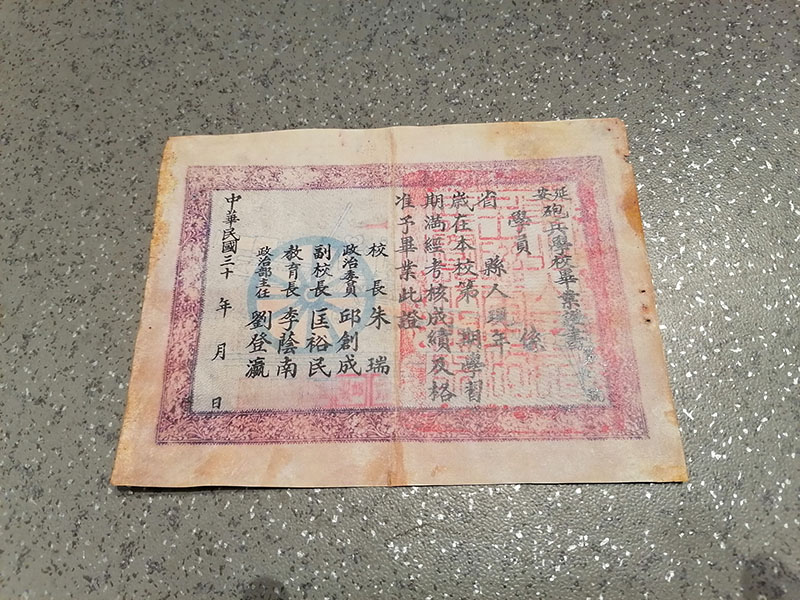 延安
砲兵學校畢業證書
學員 係
省 縣人現年
歲在本校第 期學習
期滿經考核成績及格
准予畢業此證
校長朱瑞
政治委員 邱創成
副校長匡裕民
教育長李蔭南
政治部主任 劉登瀛
中華民國三十 年 月 日